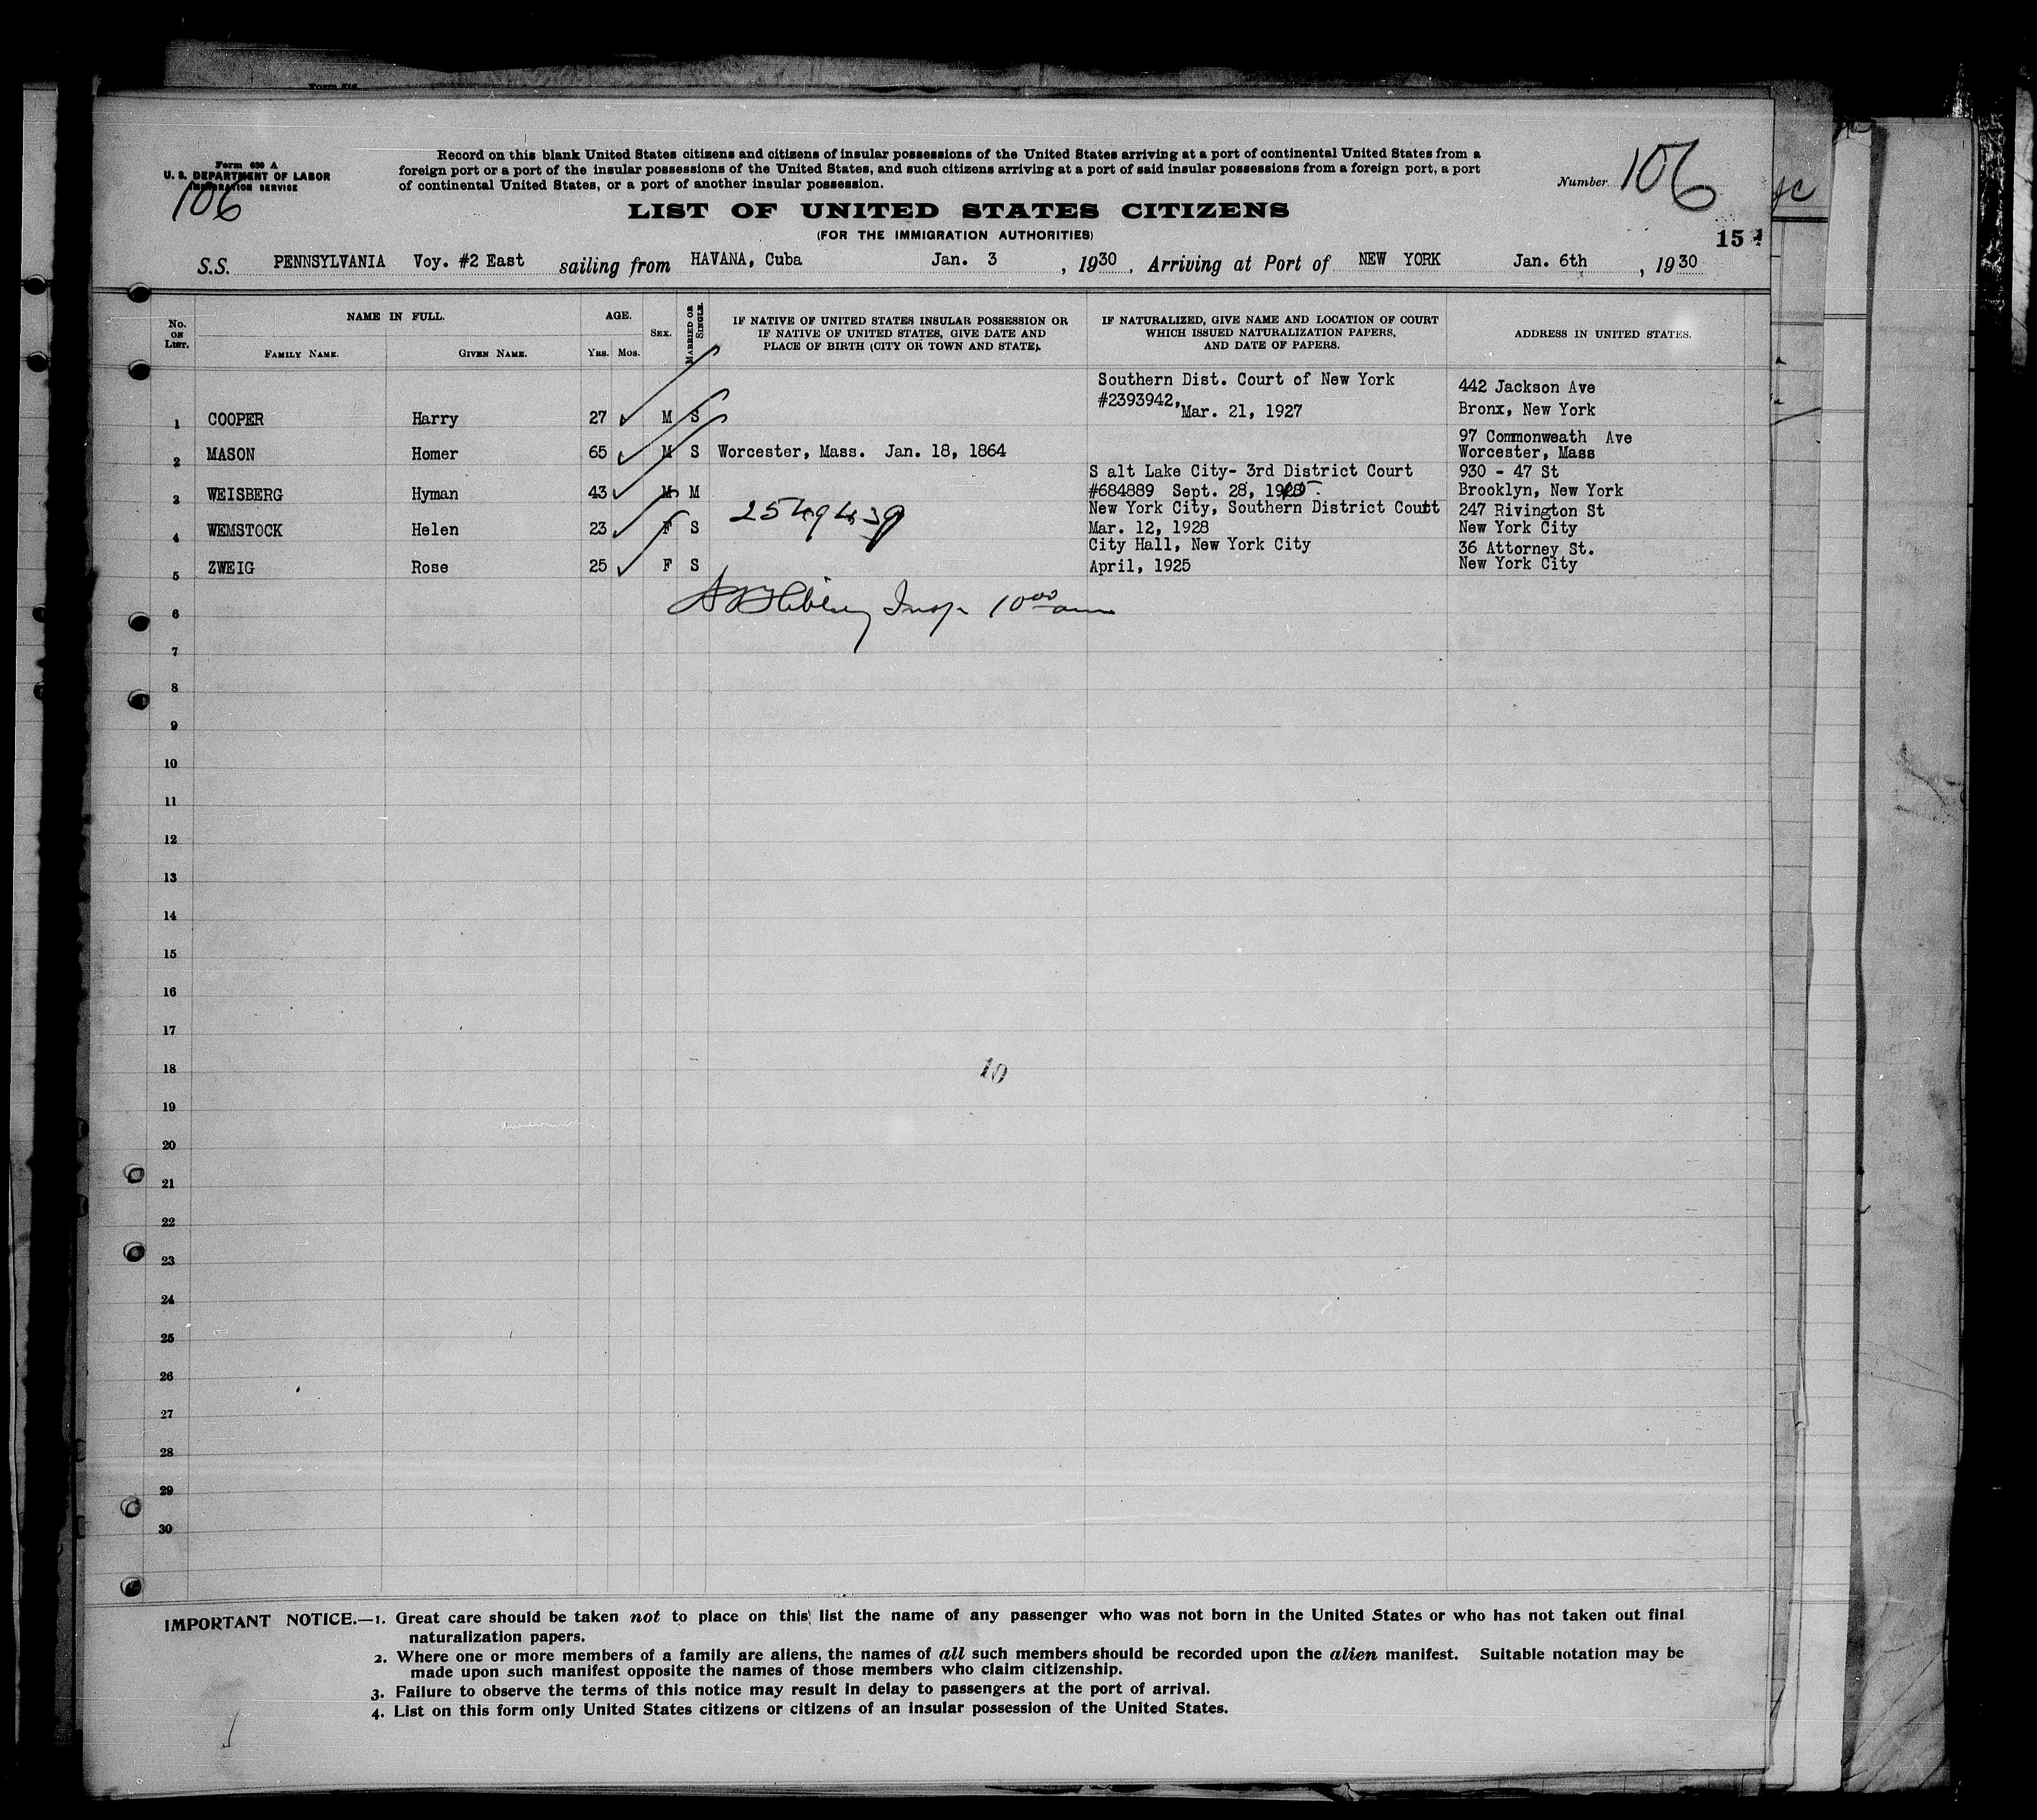 Form 630 A
U. S. DEPARTMENT OF LABOR
IMMIGRATION SERVICE
106
Record on this blank United States citizens and citizens of insular possessions of the United States arriving at a port of continental United States from a
foreign port or a port of the insular possessions of the United States, and such citizens arriving at a port of said insular possessions from a foreign port, a port
of continental United States, or a port of another insular possession.
Number 106
LIST OF UNITED STATES CITIZENS
(FOR THE IMMIGRATION AUTHORITIES)
15
S.S. PENNSYLVANIA Voy. #2 East sailing from HAVANA, Cuba Jan. 3, 1930. Arriving at Port of NEW YORK Jan. 6th, 1930
No. ON LIST. NAME IN FULL. AGE. SEX. MARRIED OR SINGLE. IF NATIVE OF UNITED STATES INSULAR POSSESSION OR IF NATIVE OF UNITED STATES, GIVE DATE AND PLACE OF BIRTH (CITY OR TOWN AND STATE). IF NATURALIZED, GIVE NAME AND LOCATION OF COURT WHICH ISSUED NATURALIZATION PAPERS, AND DATE OF PAPERS. ADDRESS IN UNITED STATES.
FAMILY NAME. GIVEN NAME. YRS. MOS.
Southern Dist. Court of New York 442 Jackson Ave
1 COOPER Harry 27 M S #2393942, Mar. 21, 1927 Bronx, New York
97 Commonweath Ave
2 MASON Homer 65 M S Worcester, Mass. Jan. 18, 1864 Worcester, Mass
S alt Lake City- 3rd District Court 930 - 47 St
3 WEISBERG Hyman 43 M M #684889 Sept. 28, Brooklyn, New York
2549439 New York City, Southern District Coutt 247 Rivington St
4 WEMSTOCK Helen 23 F S Mar. 12, 1928 New York City
City Hall, New York City 36 Attorney St.
5 ZWEIG Rose 25 F S April, 1925 New York City
6 Insp. 10 00 am
7
8
9
10
11
12
13
14
15
16
17
18 10
19
20
21
22
23
24
25
26
27
28
29
30
IMPORTANT NOTICE.—1. Great care should be taken not to place on this list the name of any passenger who was not born in the United States or who has not taken out final
naturalization papers.
2. Where one or more members of a family are aliens, the names of all such members should be recorded upon the alien manifest. Suitable notation may be
made upon such manifest opposite the names of those members who claim citizenship.
3. Failure to observe the terms of this notice may result in delay to passengers at the port of arrival.
4. List on this form only United States citizens or citizens of an insular possession of the United States.